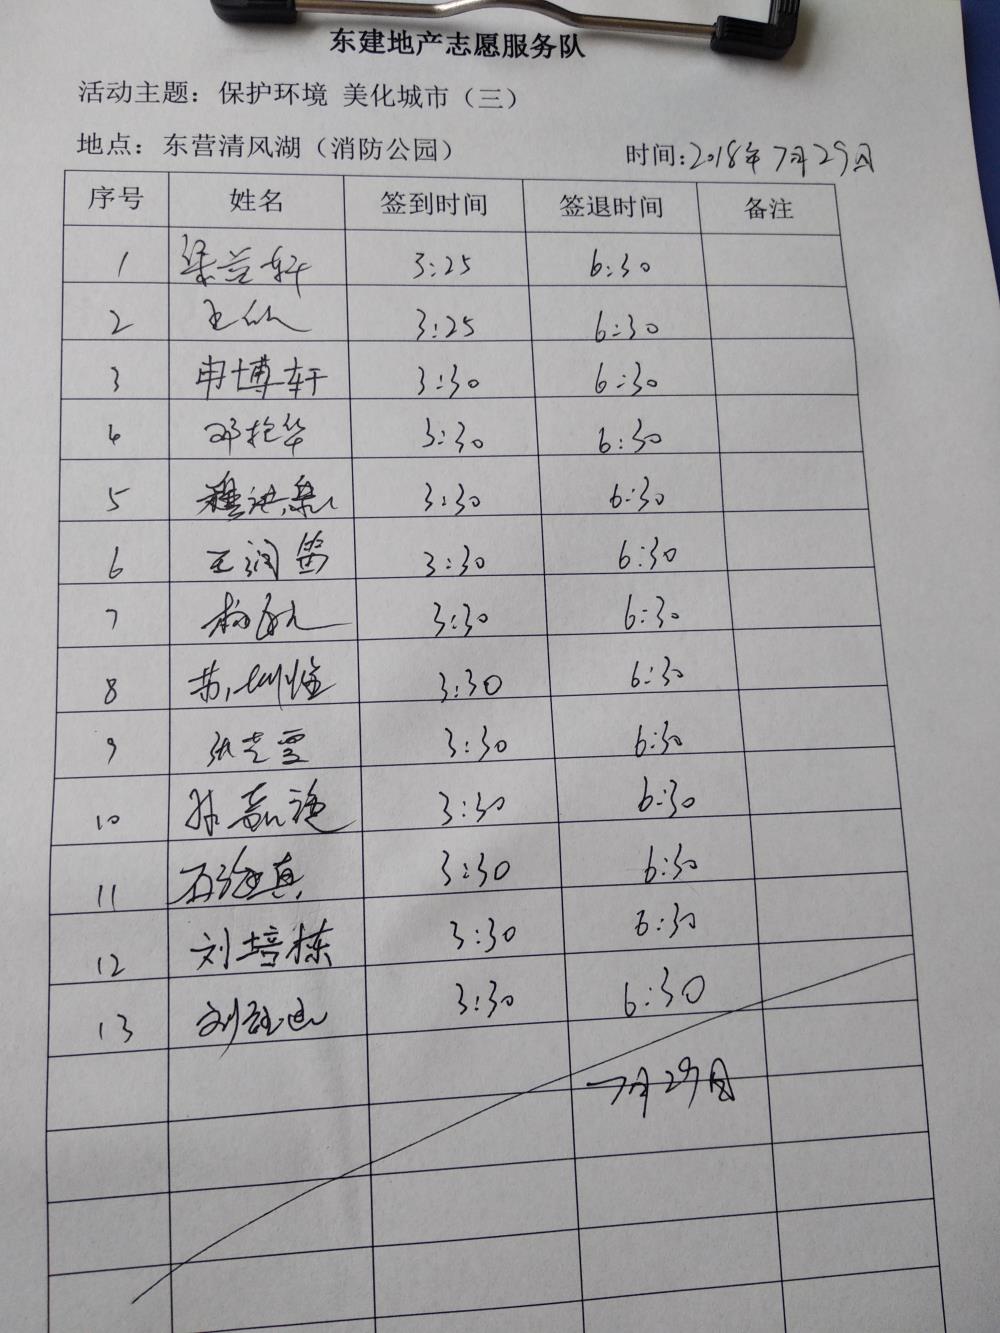 东建地产志愿服务队
活动主题：保护环境 美化城市（三）
地点：东营清风湖（消防公园）
时间：2018年7月29日
序号 姓名 签到时间 签退时间 备注
1 3:25 6:30
2 3:25 6:30
3 申博轩 3:30 6:30
4 邓艳华 3:30 6:30
5 3:30 6:30
6 王润笛 3:30 6:30
7 3:30 6:30
8 3:30 6:30
9 3:30 6:30
10 3:30 6:30
11 3:30 6:30
12 刘培栋 3:30 6:30
13 3:30 6:30
7月29日